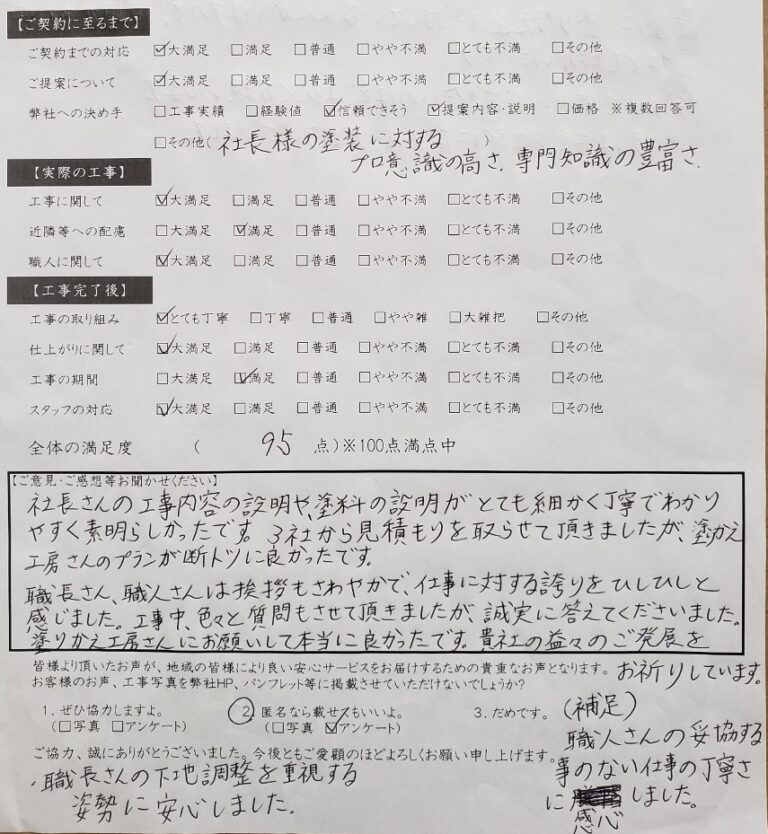 【ご契約に至るまで】
ご契約までの対応 ☑大満足 □満足 □普通 □やや不満 □とても不満 □その他
ご提案について ☑大満足 □満足 □普通 □やや不満 □とても不満 □その他
弊社への決め手 □工事実績 □経験値 ☑信頼できそう ☑提案内容・説明 □価格 ※複数回答可
□その他( 社長様の塗装に対する )
プロ意識の高さ、専門知識の豊富さ、
【実際の工事】
工事に関して ☑大満足 □満足 □普通 □やや不満 □とても不満 □その他
近隣等への配慮 □大満足 ☑満足 □普通 □やや不満 □とても不満 □その他
職人に関して ☑大満足 □満足 □普通 □やや不満 □とても不満 □その他
【工事完了後】
工事の取り組み ☑とても丁寧 □丁寧 □普通 □やや雑 □大雑把 □その他
仕上がりに関して ☑大満足 □満足 □普通 □やや不満 □とても不満 □その他
工事の期間 □大満足 ☑満足 □普通 □やや不満 □とても不満 □その他
スタッフの対応 ☑大満足 □満足 □普通 □やや不満 □とても不満 □その他
全体の満足度 ( 95 点)※100点満点中
【ご意見・ご感想等お聞かせください】
社長さんの工事内容の説明や、塗料の説明がとても細かく丁寧でわかり
やすく素明らしかったです。3社から見積もりを取らせて頂きましたが、塗りかえ
工房さんのプランが断トツに良かったです。
職長さん、職人さんは挨拶もさわやかで、仕事に対する誇りをひしひしと
感じました。工事中、色々と質問もさせて頂きましたが、誠実に答えてくださいました。
塗りかえ工房さんにお願いして本当に良かったです。貴社の益々のご発展を
お祈りしています。
皆様より頂いたお声が、地域の皆様により良い安心サービスをお届けするための貴重なお声となります。
お客様のお声、工事写真を弊社HP、パンフレット等に掲載させていただけないでしょうか?
1. ぜひ協力しますよ。 ②. 匿名なら載せてもいいよ。 3. だめです。
(□写真 □アンケート) (□写真 ☑アンケート)
ご協力、誠にありがとうございました。今後ともご愛顧のほどよろしくお願い申し上げます。
・職長さんの下地調整を重視する
姿勢に安心しました。
(補足)
職人さんの妥協する
事のない仕事の丁寧さ
に感心しました。